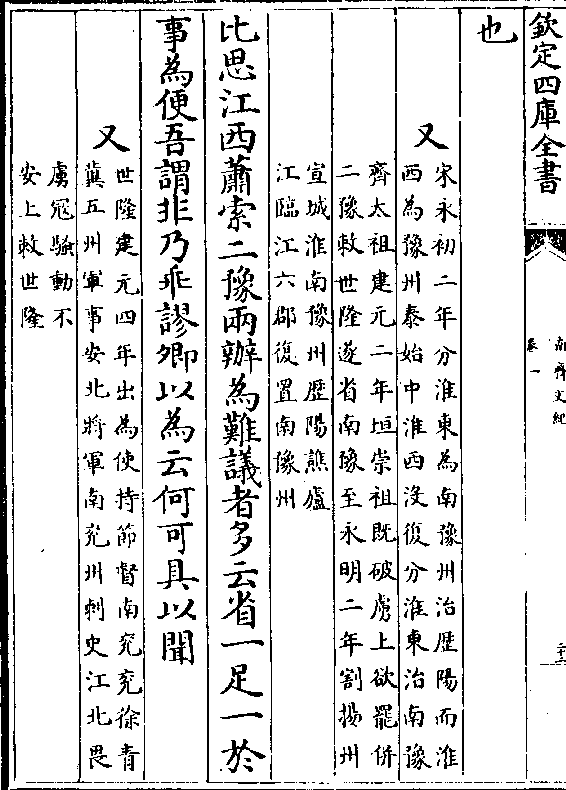 欽定四庫全書
南齊文紀
卷一
也
又
宋永初二年分淮東為南豫州治歴陽而淮
西為豫州泰始中淮西沒復分淮東治南豫
齊太祖建元二年垣崇祖既破虜上欲罷併
二豫敕世隆遂省南豫至永明二年割揚州
宣城淮南豫州歴陽譙廬
江臨江六郡復置南豫州
比思江西蕭索二豫兩辦為難議者多云省一足一於
事為便吾謂非乃乖謬卿以為云何可具以聞
又
世隆建元四年出為使持節督南兖兖徐青
冀五州軍事安北將軍南兖州刺史江北畏
虜冦騷動不
安上敕世隆